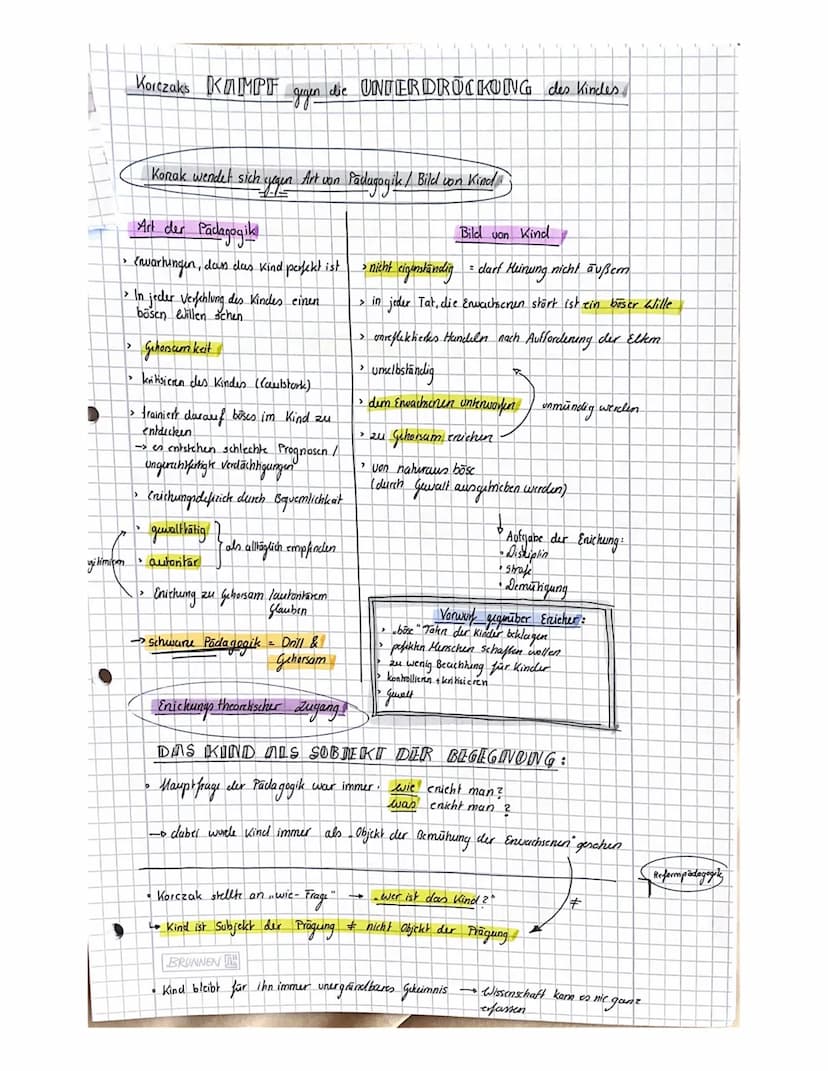 Korczaks KAMPF gegen die UNTERDRÜCKUNG des Kindes
Korzak wendet sich gegen Art von Pädagogik / Bild von Kind
Art der Pädagogik
> Erwartungen, dass das Kind perfekt ist
> In jeder Verfehlung des Kindes einen
bösen Willen sehen
> Gehorsamkeit
> kritisieren des Kindes (lautstark)
> trainiert darauf böses im Kind zu
entdecken
→ es entstehen schlechte Prognosen /
ungerechtfertigte Verdächtigungen
> Erziehungsdefizite durch Bequemlichkeit
> gewalttätig
> autoritär
als alltäglich empfinden
> Erziehung zu Gehorsam / autoritärem
Glauben
→ schwarze Pädagogik = Drill &
Gehorsam
Bild von Kind
> nicht eigenständig = darf Meinung nicht äußern
> in jeder Tat, die Erwachsenen stört ist ein böser Wille
> unreflektiertes Handeln nach Aufforderung der Eltern
> unselbständig
> dem Erwachsenen unterworfen
unmündig werden
> zu Gehorsam erziehen
> von naturaus böse
(durch Gewalt ausgetrieben werden)
↓ Aufgabe der Erziehung:
• Disziplin
• Strafe
• Demütigung
Vorwurf gegenüber Erzieher:
> "böse" Taten der Kinder beklagen
> perfekten Menschen schaffen wollen
> zu wenig Beachtung für Kinder
> kontrollieren + kritisieren
> Gewalt
Erziehungstheoretischer Zugang
DAS KIND ALS SUBJEKT DER BEGEGNUNG:
• Hauptfrage der Pädagogik war immer: "wie" erzieht man?
"was" erzieht man?
→ dabei wurde Kind immer als "Objekt der Bemühung der Erwachsenen" gesehen
Reformpädagogik
• Korczak stellte an "wie-Frage" → "wer ist das Kind?"
≠
↳ Kind ist Subjekt der Prägung ≠ nicht Objekt der Prägung
BRUNNEN
• Kind bleibt für ihn immer unergründbares Geheimnis → Wissenschaft kann es nie ganz
erfassen